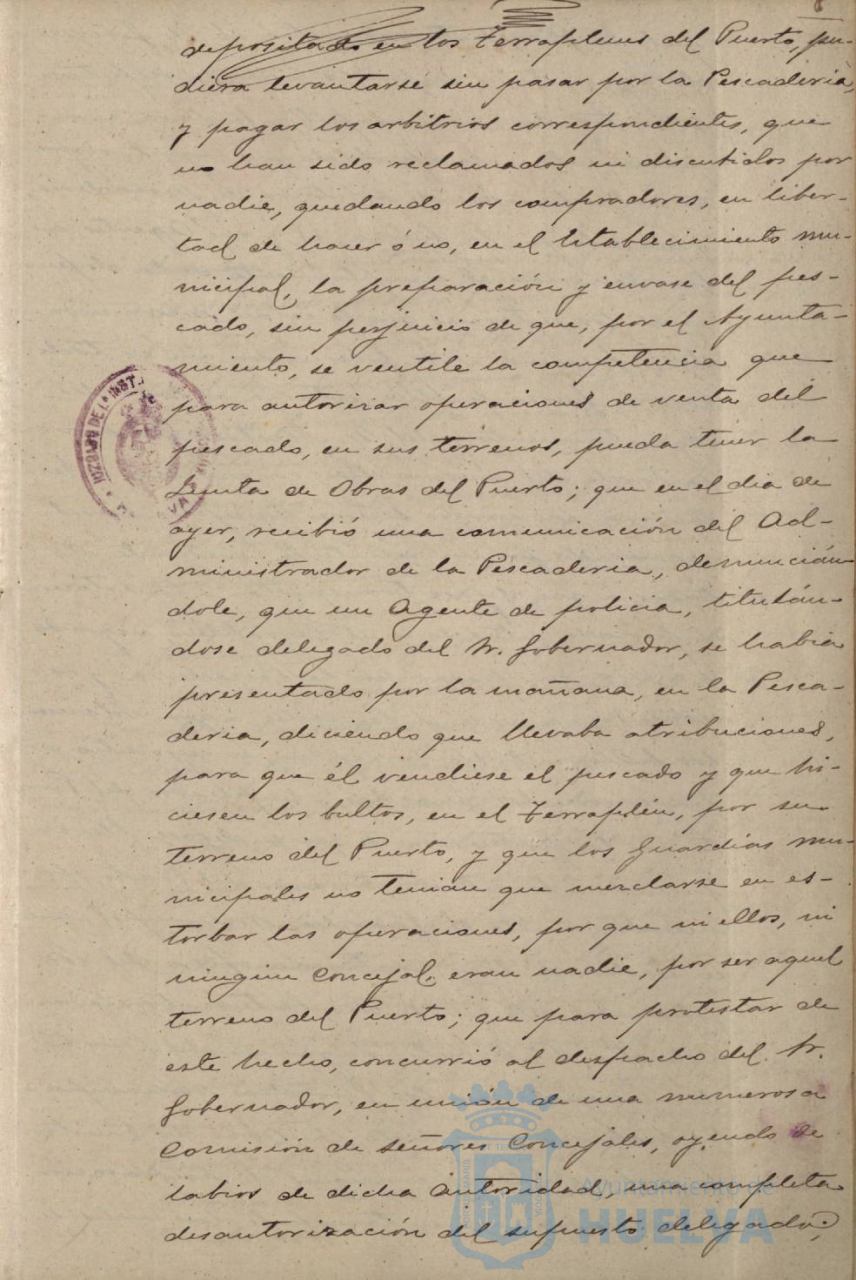 depositado en los Terraplenes del Puerto, pu-
diera levantarse sin pasar por la Pescaderia,
y pagar los arbitrios correspondientes, que
no han sido reclamados ni discutidos por
nadie, quedando los compradores, en liber-
tad de hacer ó no, en el Establecimiento mu-
nicipal, la preparación y envase del pes-
cado, sin perjuicio de que, por el Ayunta-
miento, se ventile la competencia que
para autorizar operaciones de venta del
pescado, en sus terrenos, pueda tener la
Junta de Obras del Puerto; que en el dia de
ayer, recibió una comunicación del Ad-
ministrador de la Pescaderia, denuncián-
dole, que un Agente de policia, titulán-
dose delegado del Sr. Gobernador, se habia
presentado por la mañana, en la Pesca-
deria, diciendo que llevaba atribuciones,
para que él vendiese el pescado y que hi-
ciesen los bultos, en el Terraplén, por ser
terreno del Puerto, y que los Guardias mu-
nicipales no tenian que mezclarse en es-
torbar las operaciones, por que ni ellos, ni
ningún Concejal, eran nadie, por ser aquel
terreno del Puerto; que para protestar de
este hecho, concurrió al despacho del Sr.
Gobernador, en unión de una numerosa
Comisión de señores Concejales, oyendo de
labios de dicha autoridad, una completa
desautorización del supuesto delegado;
JUZGADO DE 1ª INST
Ayuntamiento de
HUELVA